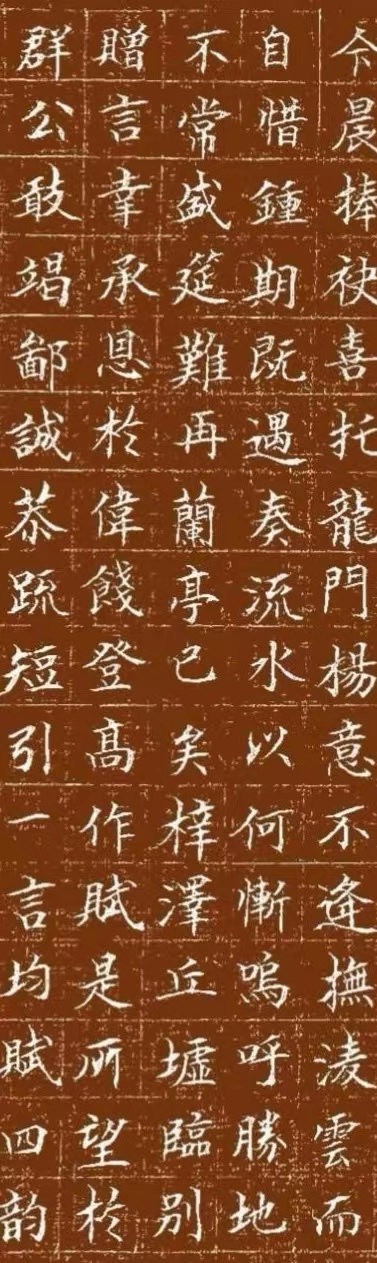 今晨捧袂喜托龍門楊意不逢撫淩雲而
自惜鍾期既遇奏流水以何慚嗚呼勝地
不常盛筵難再蘭亭已矣梓澤丘墟臨別
贈言幸承恩於偉餞登髙作賦是所望於
群公敢竭鄙誠恭疏短引一言均賦四韵